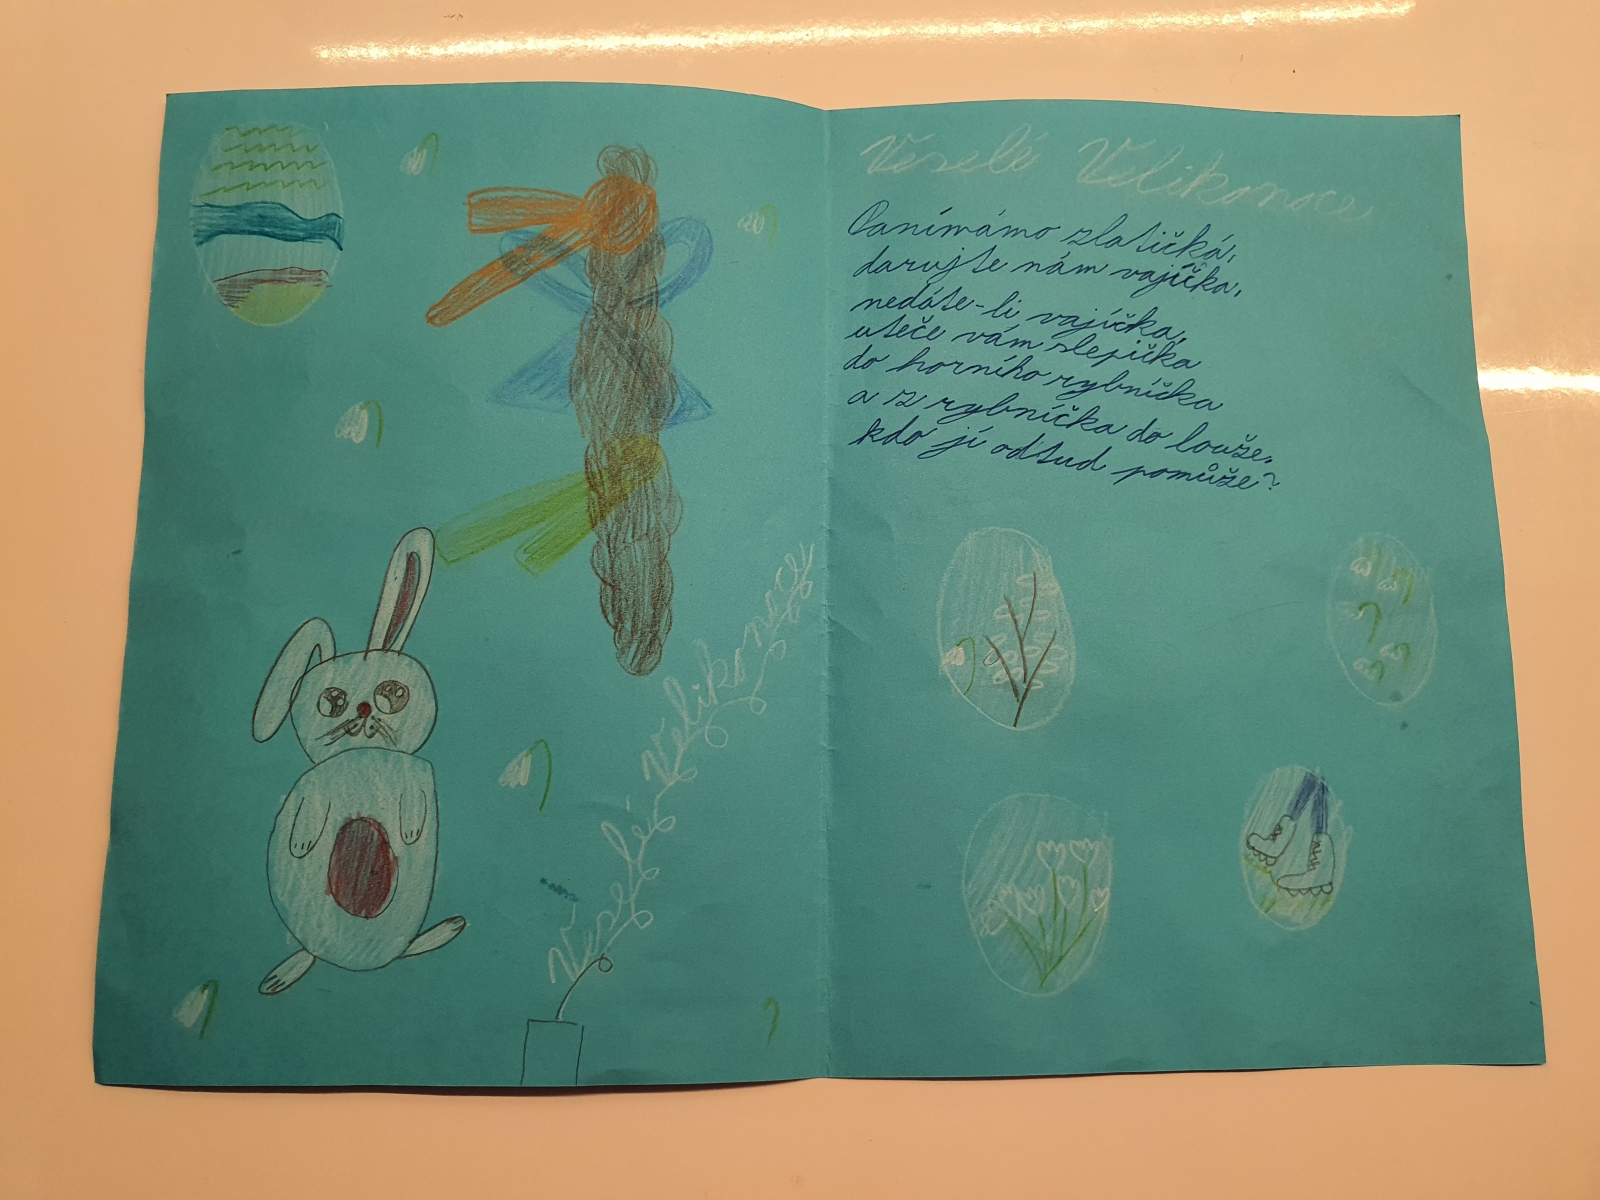 Veselé Velikonoce
Veselé Velikonoce
Panímámo zlatičká,
darujte nám vajíčka,
nedáte-li vajíčka,
uteče vám slepička
do horního rybníčka
a z rybníčka do louže,
kdo jí odtud pomůže?